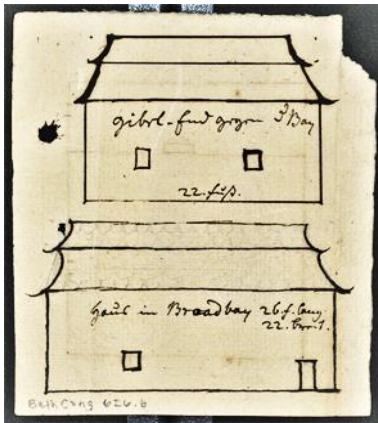 gibel-End gegen Bay
22. fuß.
Hauß in Broadbay 26. f. lang
22. breit.
Beth Cong 626.b